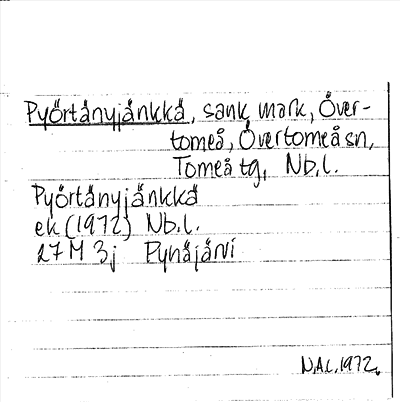 Pyörtänyjänkkä, sank mark, Över-
torneå, Övertorneå sn,
Torneå tg, Nb.l.
Pyörtänyjänkkä
ek (1972) Nb.l.
27 M 3j Pynäjärvi
NAL. 1972.